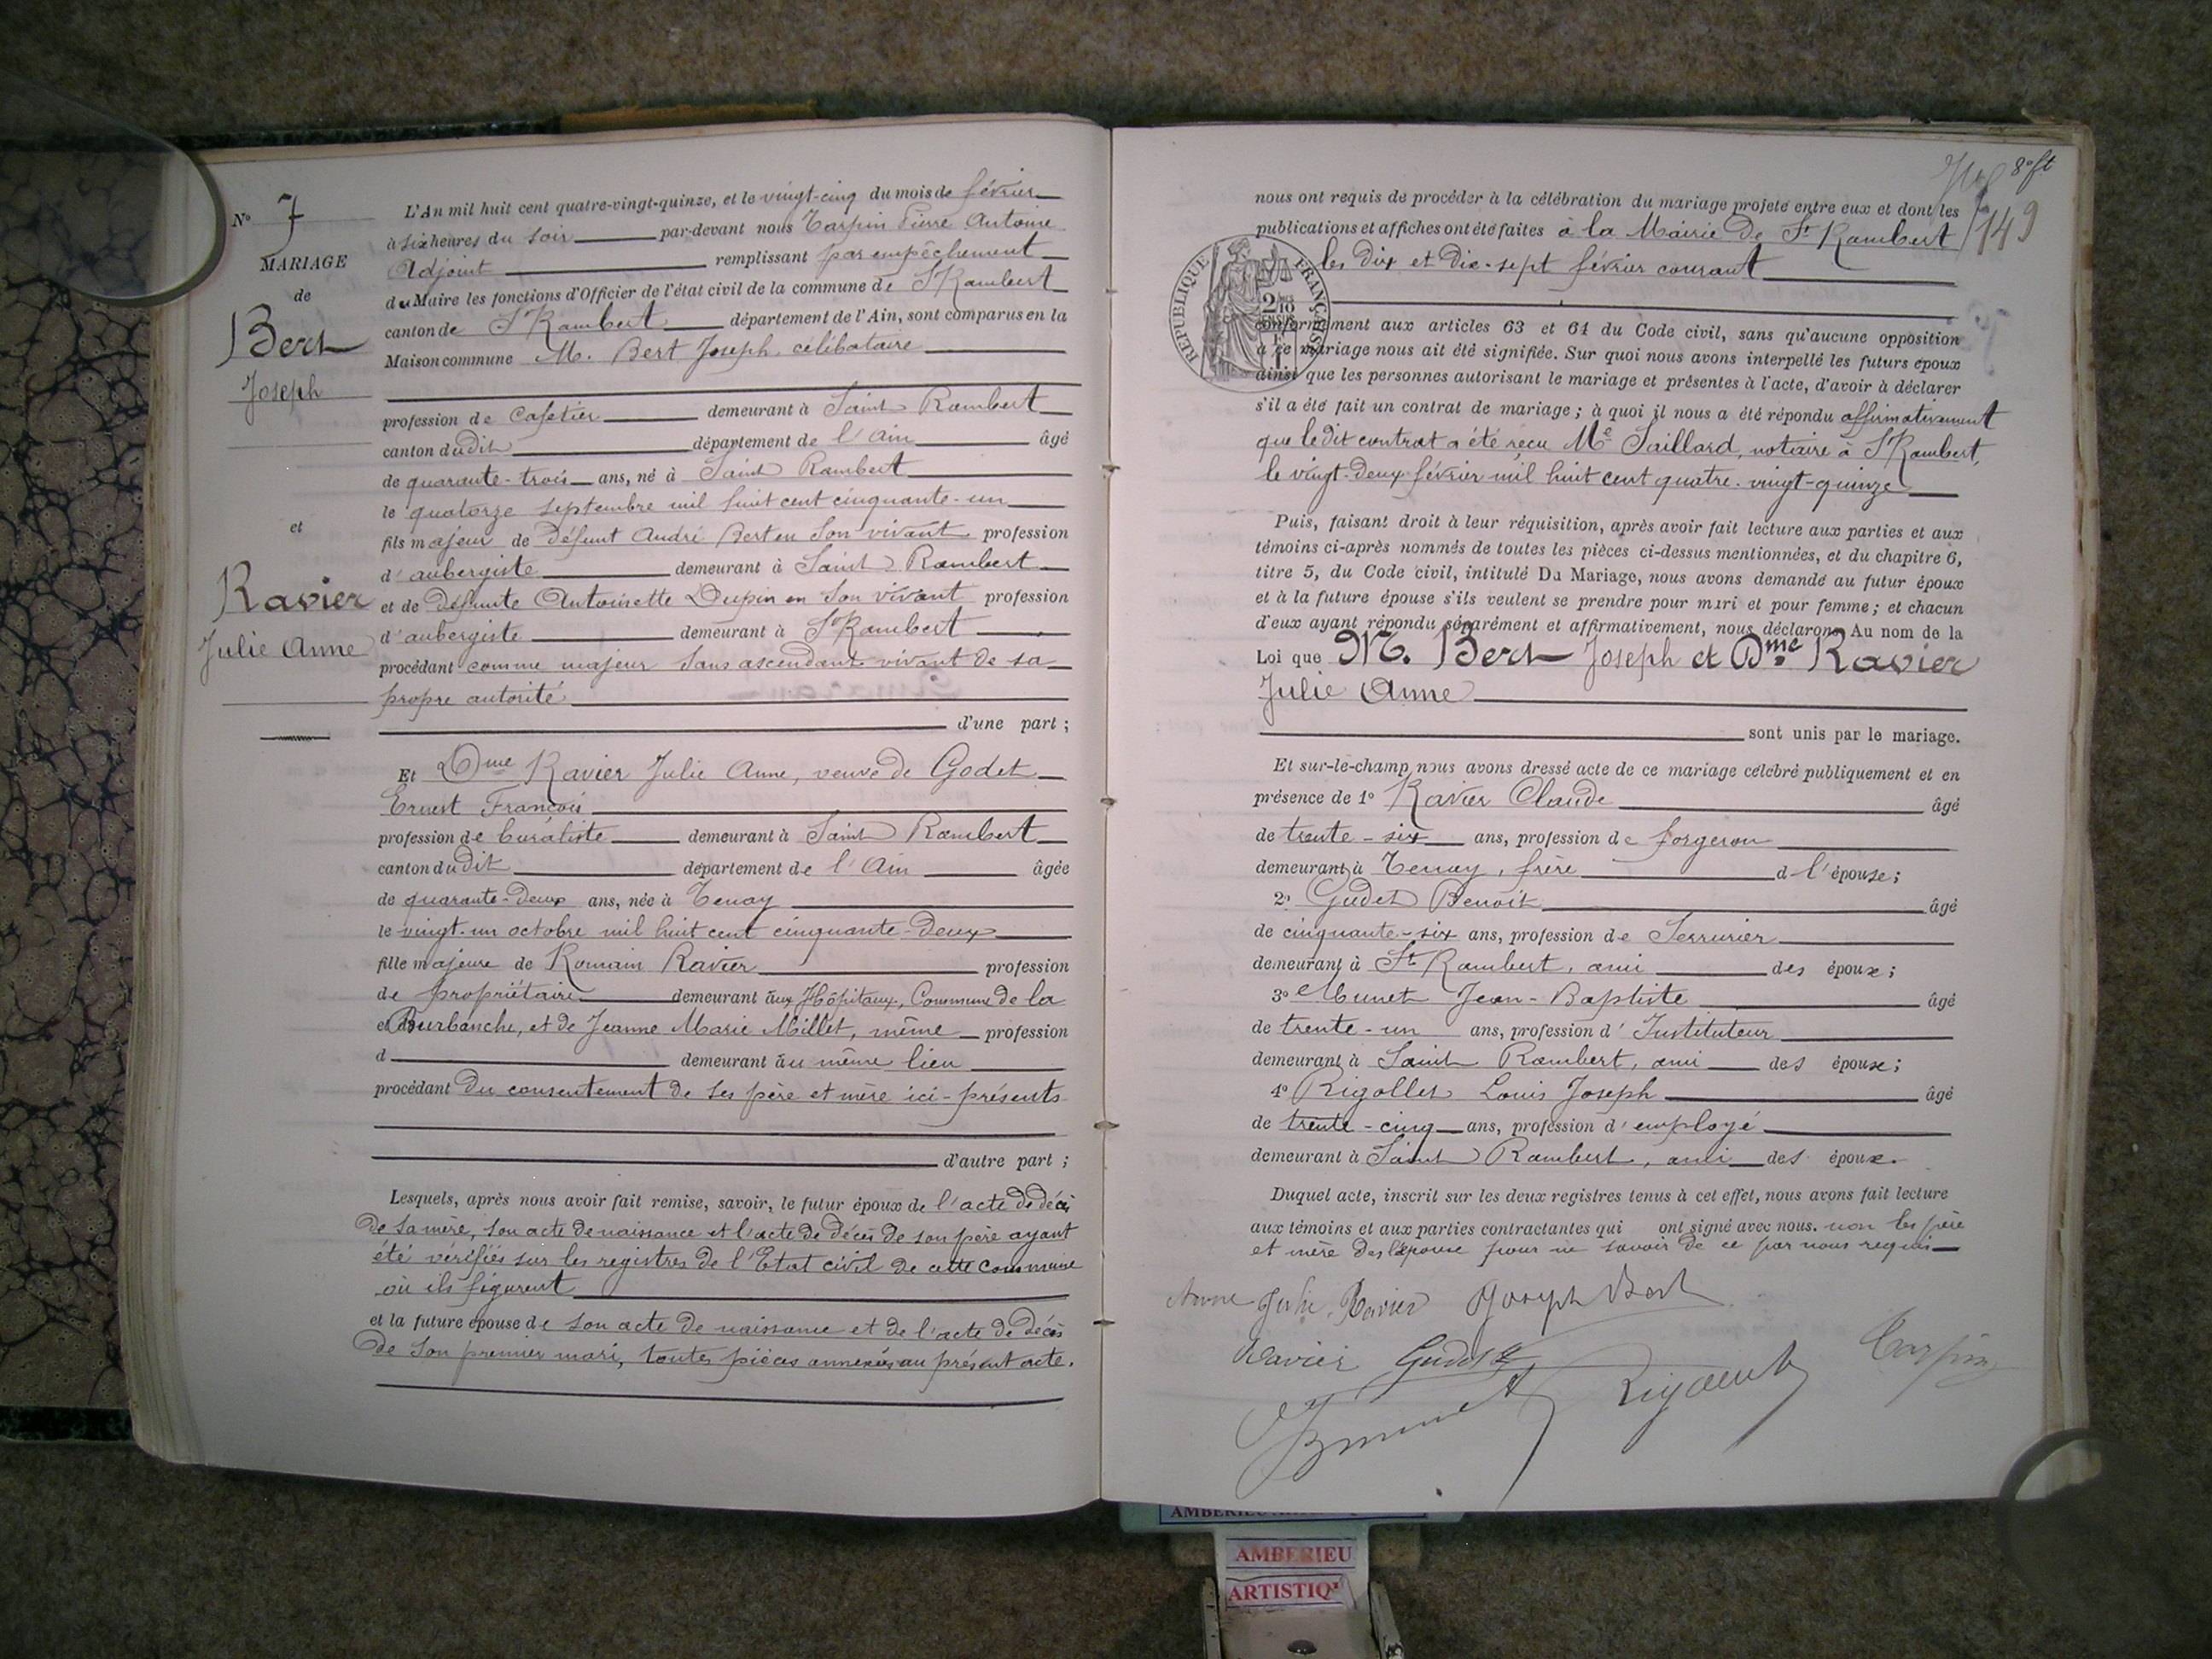 N° 7
MARIAGE
de
Bert
Joseph
et
Ravier
Julie Anne
L'An mil huit cent quatre-vingt-quinze, et le vingt-cinq du mois de février
à six heures du soir par-devant nous Tarpin Pierre Antoine
Adjoint remplissant par empêchement
du Maire les fonctions d'Officier de l'état civil de la commune de St Rambert
canton de St Rambert département de l'Ain, sont comparus en la
Maison commune M. Bert Joseph, célibataire
profession de Cafetier demeurant à Saint Rambert
canton dudit département de l'Ain âgé
de quarante-trois ans, né à Saint Rambert
le quatorze septembre mil huit cent cinquante-un
fils majeur de Défunt André Bert en Son vivant profession
d'aubergiste demeurant à Saint Rambert
et de Défunte Antoinette Dupin en Son vivant profession
d'aubergiste demeurant à St Rambert
procédant comme majeur sans ascendants vivant de sa
propre autorité
d'une part ;
Et Dme Ravier Julie Anne, veuve de Godet
Ernest François
profession de buraliste demeurant à Saint Rambert
canton dudit département de l'Ain âgée
de quarante-deux ans, née à Tenay
le vingt-un octobre mil huit cent cinquante-deux
fille majeure de Romain Ravier profession
de propriétaire demeurant aux Hôpitaux, Commune de la
Burbanche, et de Jeanne Marie Millet, même profession
d demeurant au même lieu
procédant du consentement de ses père et mère ici-présents
d'autre part ;
Lesquels, après nous avoir fait remise, savoir, le futur époux de l'acte de décès
de sa mère, son acte de naissance et l'acte de décès de son père ayant
été vérifiés sur les registres de l'Etat civil de cette commune
où ils figurent
et la future épouse de son acte de naissance et de l'acte de décès
de son premier mari, toutes pièces annexées au présent acte.
8e ft
149
nous ont requis de procéder à la célébration du mariage projeté entre eux et dont les
publications et affiches ont été faites à la Mairie de St Rambert
les dix et dix-sept février courant
RÉPUBLIQUE FRANÇAISE
conformément aux articles 63 et 64 du Code civil, sans qu'aucune opposition
à ce mariage nous ait été signifiée. Sur quoi nous avons interpellé les futurs époux
ainsi que les personnes autorisant le mariage et présentes à l'acte, d'avoir à déclarer
s'il a été fait un contrat de mariage ; à quoi il nous a été répondu affirmativement
que ledit contrat a été reçu Me Saillard, notaire à St Rambert,
le vingt-deux février mil huit cent quatre-vingt-quinze
Puis, faisant droit à leur réquisition, après avoir fait lecture aux parties et aux
témoins ci-après nommés de toutes les pièces ci-dessus mentionnées, et du chapitre 6,
titre 5, du Code civil, intitulé Du Mariage, nous avons demandé au futur époux
et à la future épouse s'ils veulent se prendre pour mari et pour femme ; et chacun
d'eux ayant répondu séparément et affirmativement, nous déclarons Au nom de la
Loi que M. Bert Joseph et Dme Ravier
Julie Anne
sont unis par le mariage.
Et sur-le-champ nous avons dressé acte de ce mariage célébré publiquement et en
présence de 1° Ravier Claude âgé
de trente-six ans, profession de forgeron
demeurant à Tenay, frère d l'épouse ;
2° Gudet Benoit âgé
de cinquante-six ans, profession de Serrurier
demeurant à St Rambert, ami des époux ;
3° Munet Jean-Baptiste âgé
de trente-un ans, profession d'Instituteur
demeurant à Saint Rambert, ami des époux ;
4° Rigollet Louis Joseph âgé
de trente-cinq ans, profession d'employé
demeurant à Saint Rambert, ami des époux.
Duquel acte, inscrit sur les deux registres tenus à cet effet, nous avons fait lecture
aux témoins et aux parties contractantes qui ont signé avec nous. non les père
et mère de l'épouse pour ne savoir de ce par nous requis
Anne Julie Ravier Joseph Bert
Ravier Gudet Tarpin
AMBERIEU
AMBERIEU
ARTISTIQ